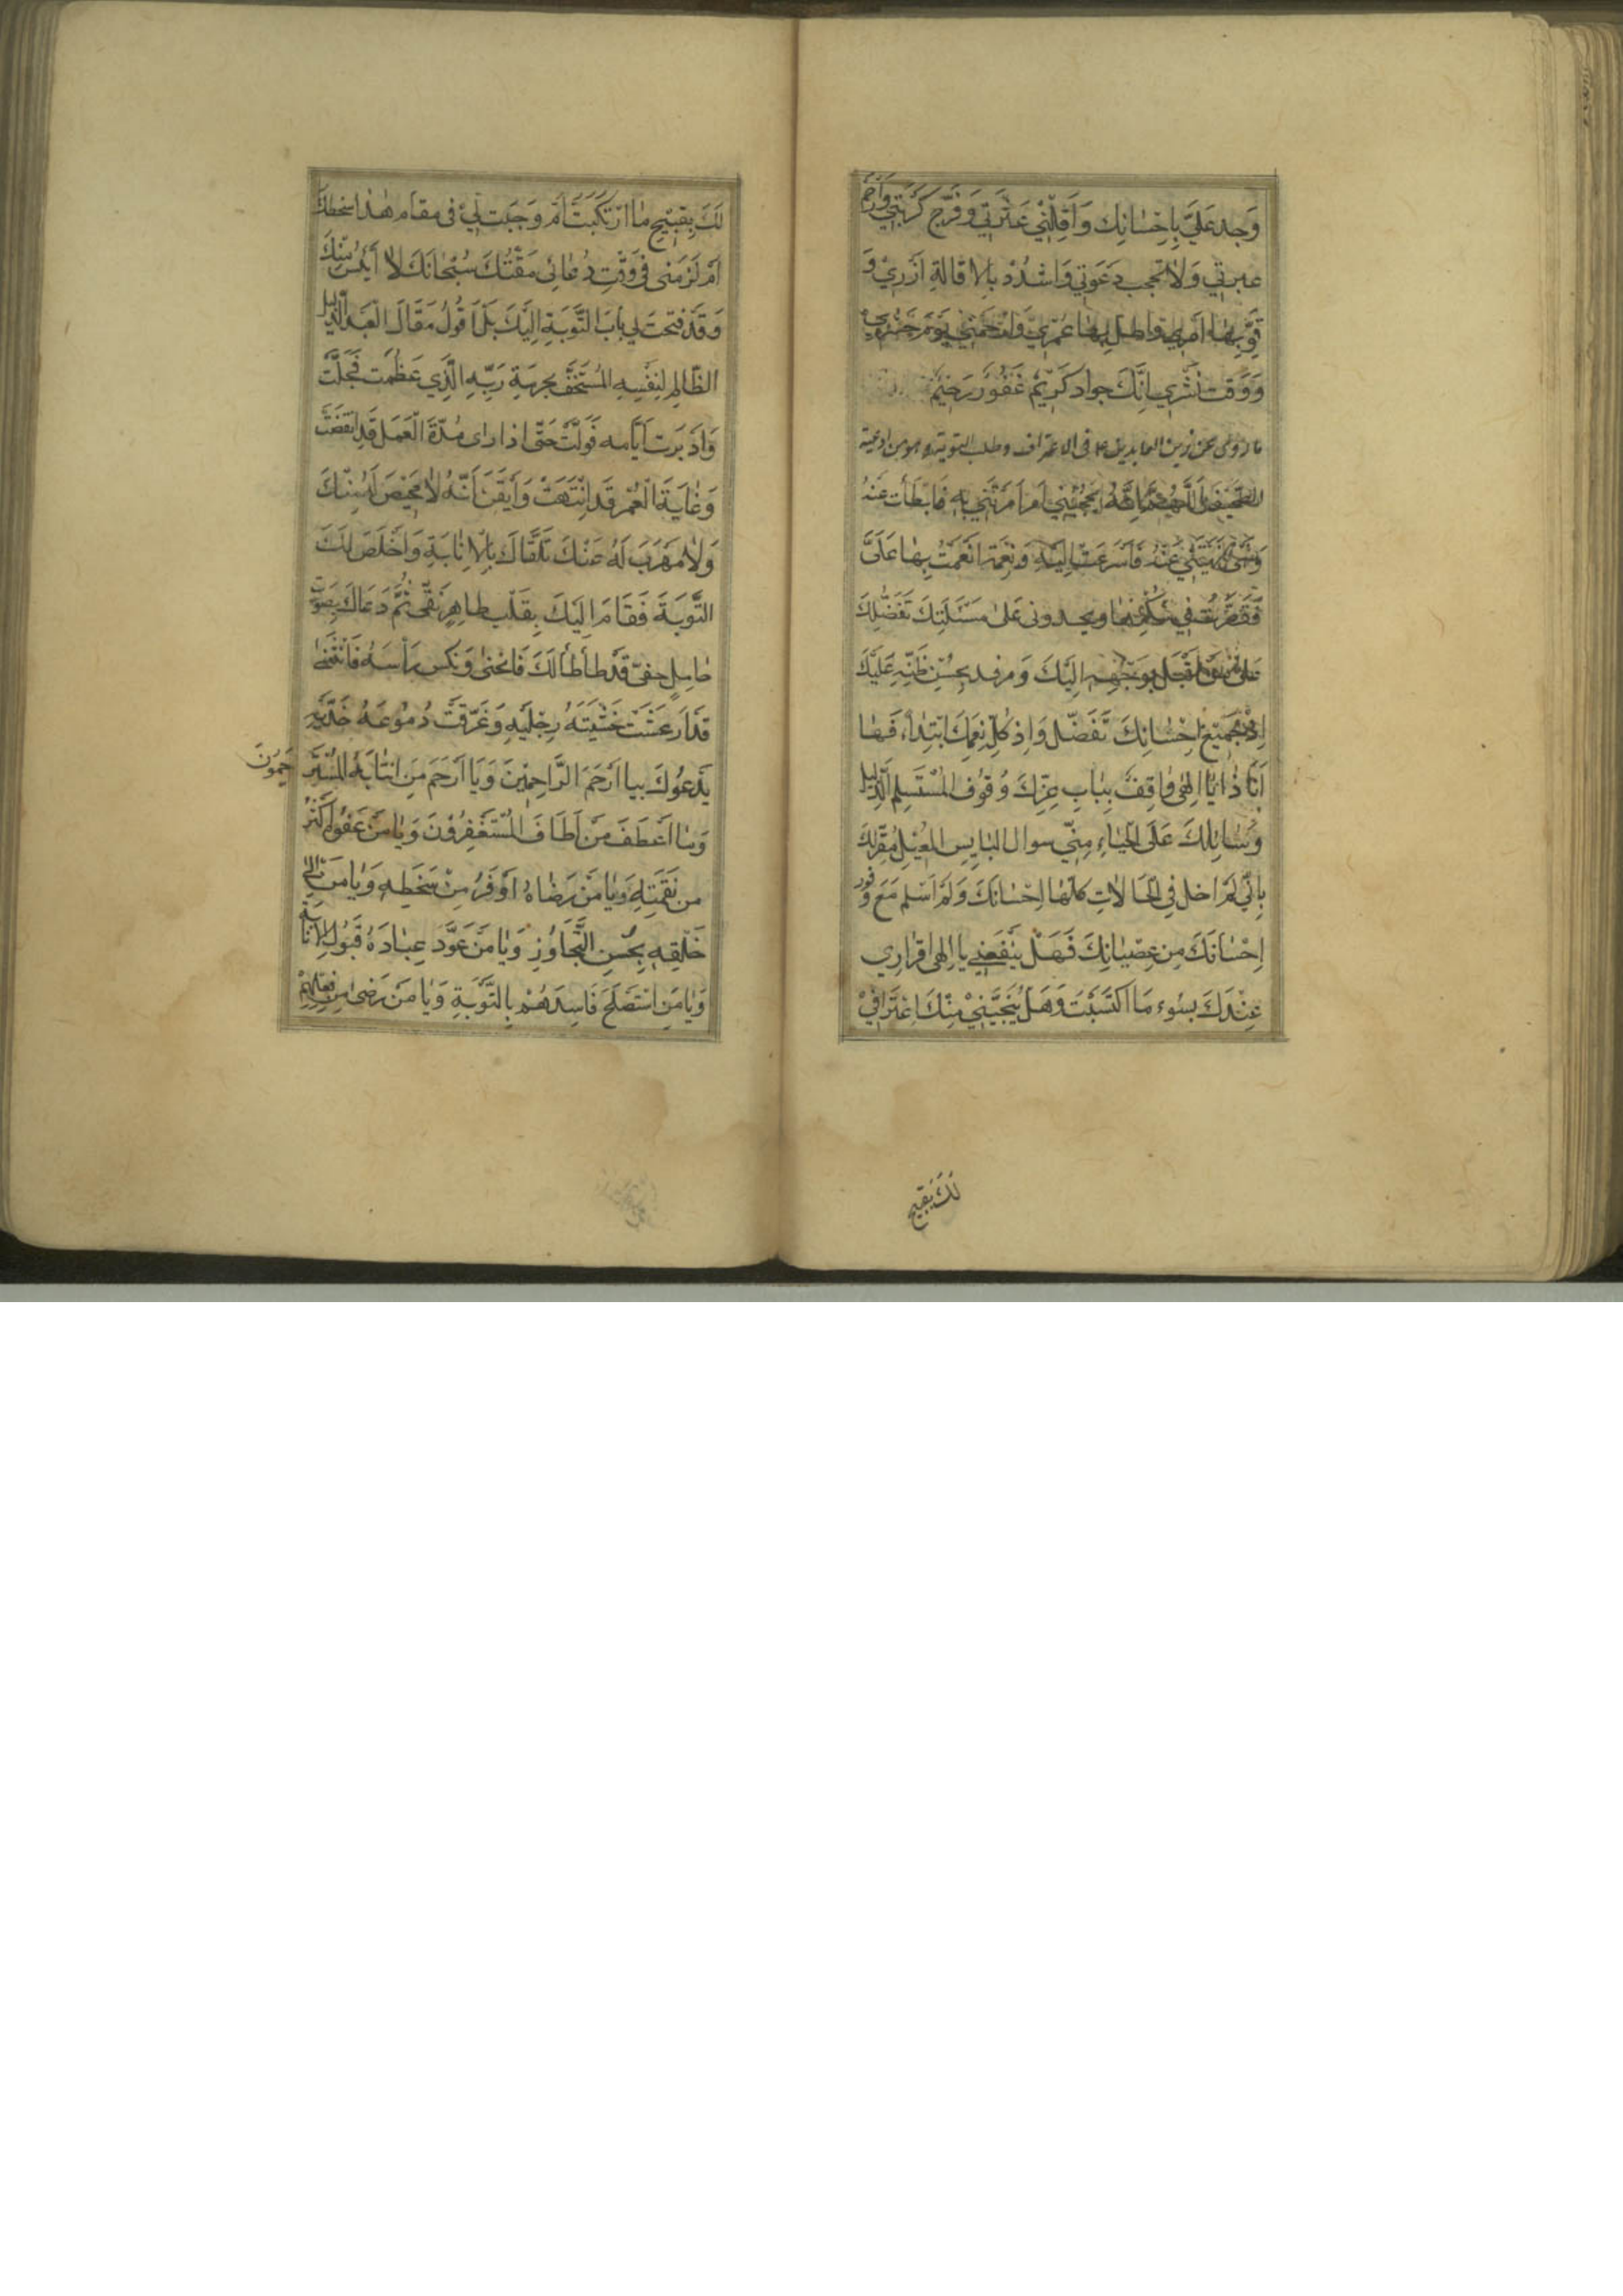 وَجد عَلَيَّ بِاِحْسَانِكَ وَاَقِلْنِيْ عَثْرَتِي وَفَرِّج كُرْبَتِي وَارْحَمْ
عبرتي وَلَا تَحجب دَعَوتي وَاشْدُدْ بالاِقالةِ اَزْرِيْ وَ
قَوِّ بِهَا اَمْرِي وَاطل بِهَا عُمْرِيْ وَارْحَمْنِي يَوْمَ حَشْرِي
وَوَقت نَشْرِي اِنَّكَ جواد كَرِيْمٌ غَفُوْرٌ رَحِيْمٌ
ما روى عن زين العابدين ع فى الاعتراف وطلب التوبة وهو من ادعية
الصحيفة اَللّهُمَّ اِنَّهُ يَحْجُبُنِي اَمر اَمَرْتَنِي بِهِ فَاَبْطَأْت عَنْهُ
وَنَهْي نَهَيْتَنِي عَنْهُ فَاَسْرَعْت اِلَيْهِ وَنِعْمَة اَنْعَمْتَ بِهَا عَلَىَّ
فَقَصَّرْت فِي شُكْرِهَا ويحدونى عَلىٰ مَسْئَلَتِكَ تَفَضُّلِكَ
عَلىٰ مَنْ اَقْبَلَ بِوَجْهِهِ اِلَيْكَ وَمَن وفد بِحُسْنِ ظَنِّهِ عَلَيْكَ
اِذْ جَمِيْعُ اِحْسَانِكَ تَفَضّل وَاِذ كُلّ نِعَمِكَ ابْتِدَاءٌ، فَهَا
اَنَا ذَا يَا اِلٰهِى وَاقِفٌ بِبَابِ عِزِّكَ وُقُوْف الْمُسْتَسْلِمِ الذَّلِيل
وَسَائِلكَ عَلَى الْحَيَاءِ مِنِّي سوال البَايِسِ المُعِيْلِ مُقِرّلَكَ
بِاَنِّي لَمْ اخل فِي الْحَالَاتِ كلّهَا اِحْسَانَكَ وَلَمْ اَسْلَمْ مَعَ وفُور
اِحْسَانِكَ مِن عِصْيَانِكَ فَهَلْ يَنْفَعُنِي يا اِلٰهِى اِقْرَارِي
عِنْدَكَ بسُوء مَا اكتَسَبْتُ وَهَلْ يُنْجِيْنِيْ مِنْكَ اِعْتِرَافِيْ
لَكَ بِقَبِيْحِ
لَكَ بِقَبِيْحِ مَا ارْتَكَبْتُ اَمْ وَجَبَت لِيْ فِى مَقَام هٰذا سَخطكَ
اَمْ لَزِمَنِى فِى وَقْتِ دُعَائِى مَقْتُكَ سُبْحَانَكَ لَا اَيْئَسُ مِنْكَ
وَقَدْ فَتَحْتَ لِى بَابَ التَّوْبَةِ اِلَيْكَ بَلْ اَقُوْلُ مَقَالَ الْعَبْدِ الذَّلِيْل
الظَّالِمِ لِنَفْسِهِ الْمُسْتَخِفِّ بحرمَةِ رَبِّهِ الَّذِي عَظُمَت فَجَلَّتْ
وَاَدْبَرَت اَيَّامه فَوَلَّتْ حَتّى اذا رَاى مُدَّةَ الْعَمَل قَدِ انْقَضَتْ
وَغَايَةَ الْعُمر قَدِ انْتَهَتْ وَاَيْقَنَ اَنَّهُ لَا مَحِيْصَ لَهُ مِنْكَ
وَلَا مَهْرَبَ لَهُ عَنْكَ تَلَقَّاكَ بِالْاِنَابَةِ وَاَخْلَصَ لَكَ
التَّوْبَةَ فَقَامَ اِلَيْكَ بِقَلْبٍ طاهِرٍ نَقِّى ثُمَّ دَعَاكَ بِصَوْتٍ
حَامِلٍ خفىّ قَدْ تطأطأ لَكَ فَانْحَنىٰ وَنَكس رَأْسَهُ فَانْثَنىٰ
قَدْ اَرعَشَت خَشْيَتَهُ رِجْلَيْهِ وَغَرَّقَتْ دُمُوْعَهُ خَدَّيْهِ
يَدْعُوْكَ بيا اَرْحَمَ الرَّاحِمِيْنَ وَيَا اَرْحَمَ مَنِ انْتَابَهُ الْمُسْتَرْ
حِمُوْنَ
وَيَا اَعْطَفَ مَنْ اَطَافَ الْمُسْتَغْفِرُوْنَ وَيَا مَنْ عَفْوُهُ اَكْثَرُ
من نَقِمَتِهِ وَيَا مَنْ رِضَاهُ اَوْفَرُ مِنْ سَخَطِهِ وَيَا مَن
خَلْقِهِ بِحُسْنِ التَّجَاوُزِ وَيَا مَنْ عَوَّدَ عِبَادَهُ قَبُوْلَ الْاِنَابَةِ
وَيَا مَنِ اسْتَصْلَحَ فَاسِدَهُمْ بِالتَّوْبَةِ وَيَا مَنْ رَضىٰ مِنْ فِعْلِهِمْ